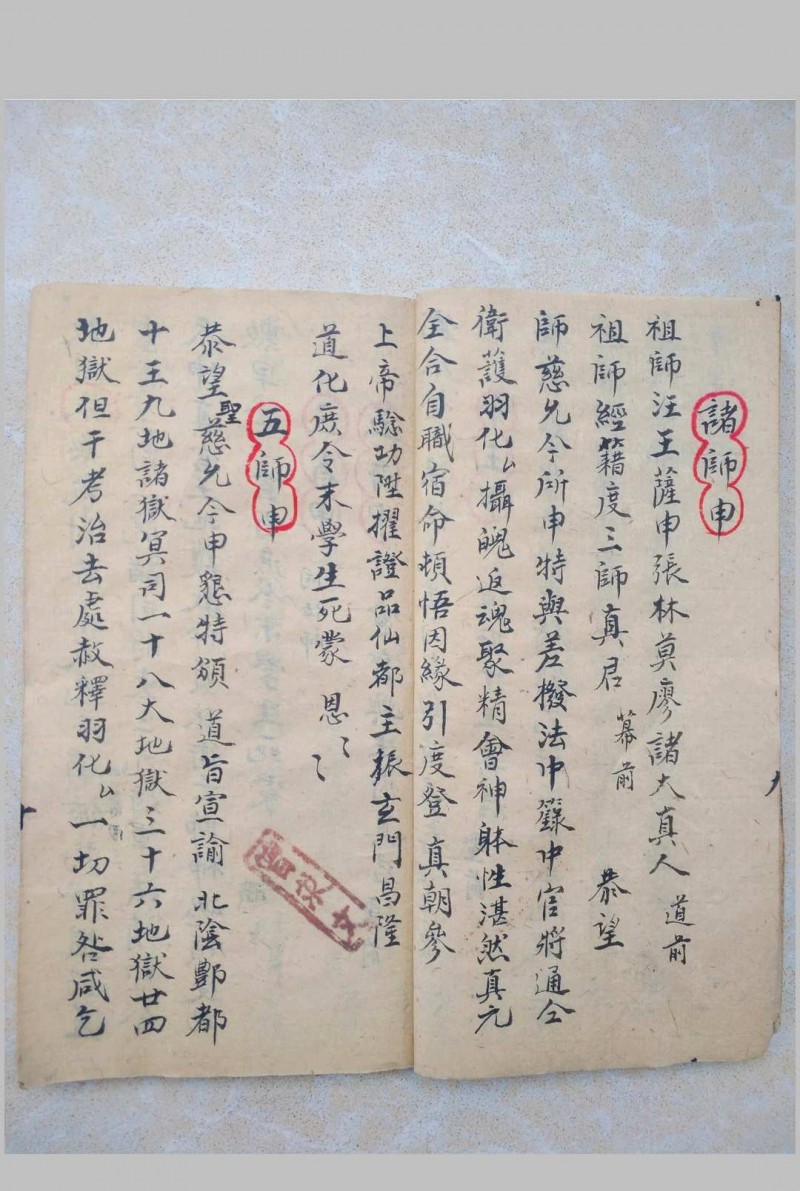 諸師申
祖師汪王薩申張林莫廖諸大真人 道前
祖師經籍度三師真君 幕前 恭望
師慈允今所申特與差撥法中籙中官將通仝
衛護羽化厶攝魄返魂聚精會神躰性湛然真元
全合自職宿命頓悟因緣引度登真朝參
上帝驗功陞擢證品仙都主振玄門昌隆
道化庶令末學生死蒙 恩
五師申
恭望聖慈允今申懇特頒 道旨宣諭 北陰酆都
十王九地諸獄冥司一十八大地獄三十六地獄廿四
地獄但干考治去處赦釋羽化厶一切罪咎咸乞